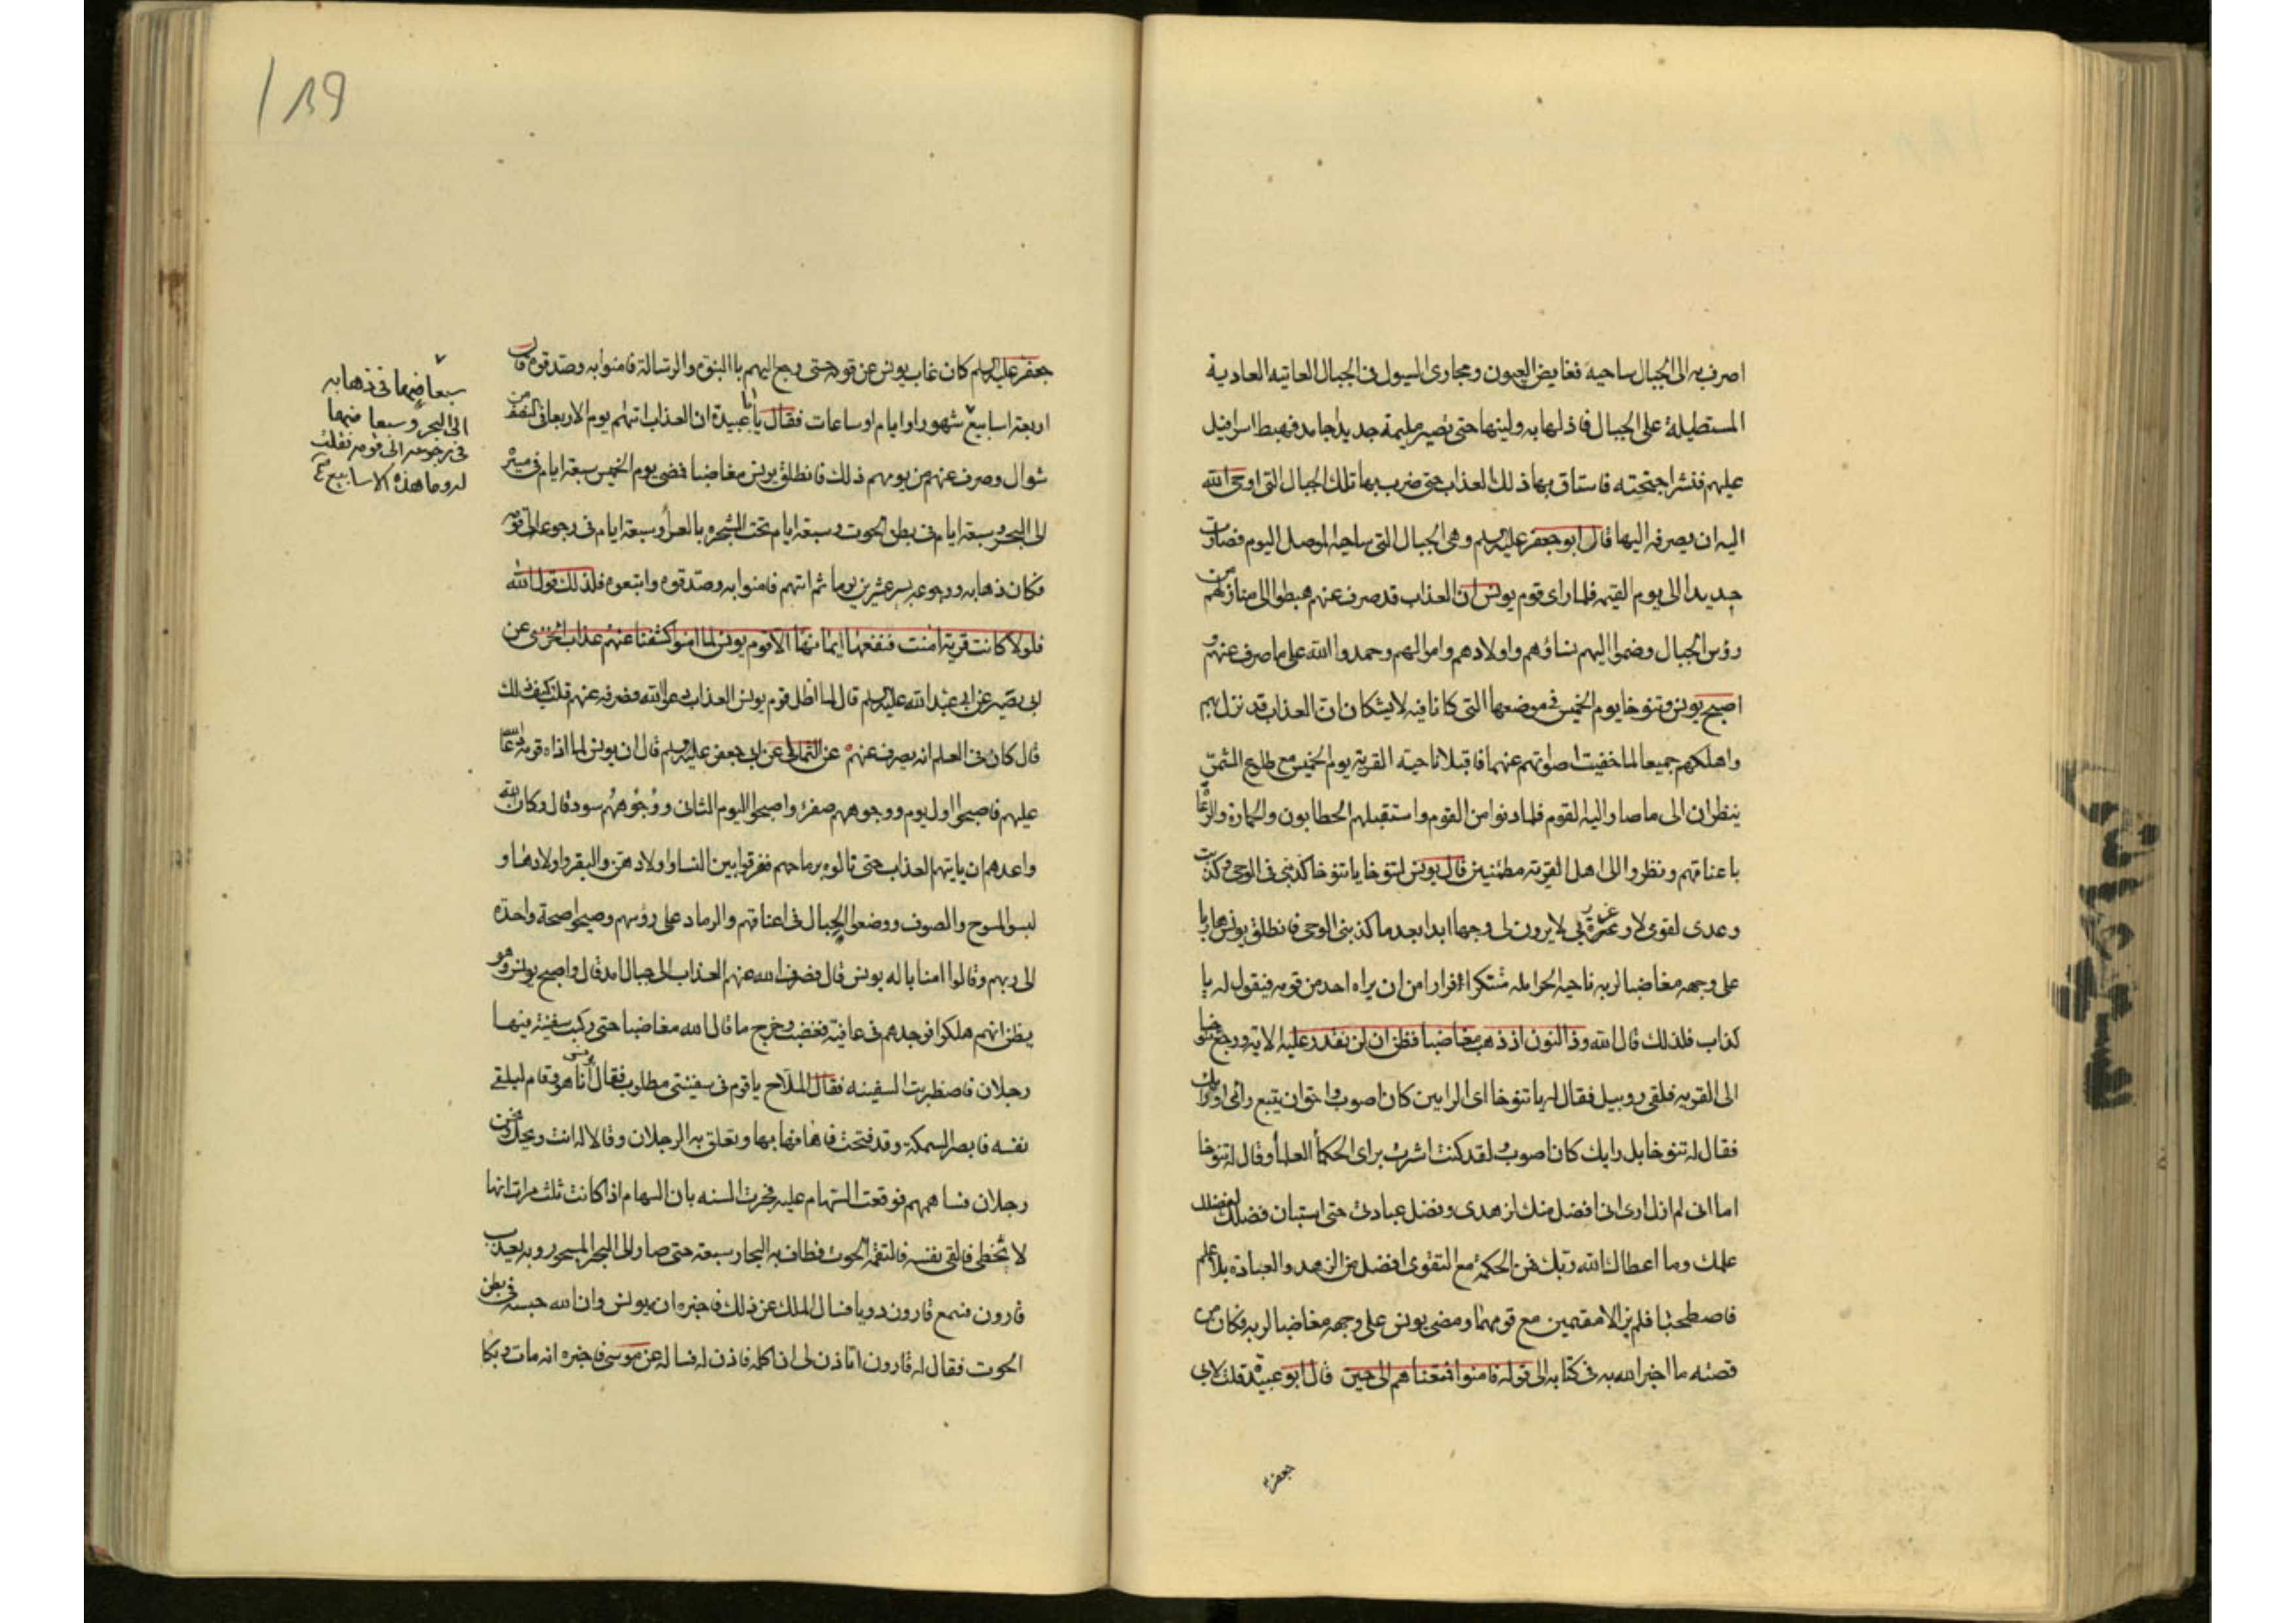 اصرف به الى الجبال ساحية فغايض العيون ومجارى السيول فى الجبال العاتيه العادية
المستطيلة على الجبال فاذلها به ولينها حتى تصير مليمة حديدا جامد فهبط اسرافيل
عليهم فنشر اجنحته فاستاق بها ذلك العذاب حتى ضرب بها تلك الجبال التى اوحى الله
اليه ان يصرفه اليها قال ابو جعفر عليه السلم وهى الجبال التى بناحية الموصل اليوم فصارت
حديدا الى يوم القيمة فلما راى قوم يونس ان العذاب قد صرف عنهم هبطوا الى منازلهم من
رؤس الجبال وضموا اليهم نساؤهم واولادهم واموالهم وحمدوا الله على ما صرف عنهم و
اصبح يونس وتنوخا يوم الخميس فى موضعهما التى كانا فيه لا يشكان ان العذاب قد نزل بهم
واهلكهم جميعا لما خفيت اصواتهم عنهما فاقبلا ناحية القرية يوم الخميس مع طلوع الشمس
ينظران الى ما صار اليه القوم فلما دنوا من القوم واستقبلهم الحطابون والحمارة والرعاة
باعناقهم ونظروا الى اهل القرية مطمئنين قال يونس لتنوخا يا تنوخا كذبنى الوحى وكذبت
وعدى لقومى لا وعزة ربى لا يرون لى وجها ابدا بعد ما كذبنى الوحى فانطلق يونس هاربا
على وجهه مغاضبا لربه ناحية البحر متنكرا فرارا من ان يراه احد من قومه فيقول له يا
كذاب فلذلك قال الله وذا النون اذ ذهب مغاضبا فظن ان لن نقدر عليه الاية ورجع تنوخا
الى القريه فلقى روبيل فقال له يا تنوخا اى الرايين كان اصوب واحق ان يتبع رائى او رايك
فقال له تنوخا بل رايك كان اصوب لقد كنت اشرت براى الحكمأ العلمأ وقال له تنوخا
اما انى لم ازل ارى انى افضل منك لزهدى وفضل عبادتى حتى استبان فضلك لفضل
علمك وما اعطاك الله ربك من الحكمة مع التقوى افضل من الزهد والعبادة بلا علم
فاصطحبا فلم يزالا مقيمين مع قومهما ومضى يونس على وجهه مغاضبا لربه فكان من
قصته ما اخبر الله به فى كتابه الى قوله فامنوا فمتعناهم الى حين قال ابو عبيدة قلت لابى
جعفر
جعفر عليه السلم كم كان غاب يونس عن قومه حتى رجع اليهم بالنبوة والرسالة فامنوا به وصدقوه قال
اربعة اسابيع شهور او ايام او ساعات فقال يا ابا عبيدة ان العذاب اتاهم يوم الاربعا فى النصف من
شوال وصرف عنهم من يومهم ذلك فانطلق يونس مغاضبا فمضى يوم الخميس سبعة ايام فى مسيره
الى البحر وسبعة ايام فى بطن الحوت وسبعة ايام تحت الشجرة بالعرأ وسبعة ايام فى رجوعه الى قومه
فكان ذهابه ورجوعه عشرين يوما ثم اتيهم فامنوا به وصدقوه واتبعوه فلذلك قول الله
فلولا كانت قرية امنت فنفعها ايمانها الا قوم يونس لما امنوا كشفنا عنهم عذاب الخزى عن
ابى بصير عن ابى عبد الله عليه السلم قال لما اظل قوم يونس العذاب دعوا الله فصرفه عنهم قلت كيف ذلك
قال كان فى العلم انه يصرف عنهم عن الثمالى عن ابى جعفر عليه السلم قال ان يونس لما اذاه قومه دعا الله
عليهم فاصبحوا اول يوم ووجوههم صفرة واصبحوا اليوم الثانى ووجوههم سود قال وكان الله
واعدهم ان ياتيهم العذاب حتى نالوه برماحهم ففرقوا بين النسا واولادهن والبقر واولادها و
لبسوا المسوح والصوف ووضعوا الحبال فى اعناقهم والرماد على رؤسهم وصيحوا صيحة واحدة
الى ربهم وقالوا امنا باله يونس قال فصرف الله عنهم العذاب الى جبال امد قال واصبح يونس وهو
يظن انهم هلكوا فوجدهم فى عافية فغضب وخرج ما قال الله مغاضبا حتى ركب سفينة فيها
رجلان فاضطربت السفينه فقال الملاح يا قوم فى سفينتى مطلوب فقال يونس انا هو وقام ليلقى
نفسه فابصر السمكة وقد فتحت فاها فهابها وتعلق به الرجلان وقالا له انت ويحك ونحن
رجلان فساهمهم فوقعت السهام عليه فجرت السنه بان السهام اذا كانت ثلث مرات انها
لا تخطى فالقى نفسه فالتقمه الحوت فطاف به البحار سبعة حتى صار الى البحر المسجور وبه يعذب
قارون فسمع قارون دويا فسال الملك عن ذلك فاخبره ان يونس وان الله حبسه فى بطن
الحوت فقال له قارون اتاذن لى ان اكلمه فاذن له فساله عن موسى فاخبره انه مات وبكا
سبعا منها فى ذهابه
الى البحر وسبعا منها
فى رجوعه الى قومه فقلت
له وما هذه الاسابيع
189